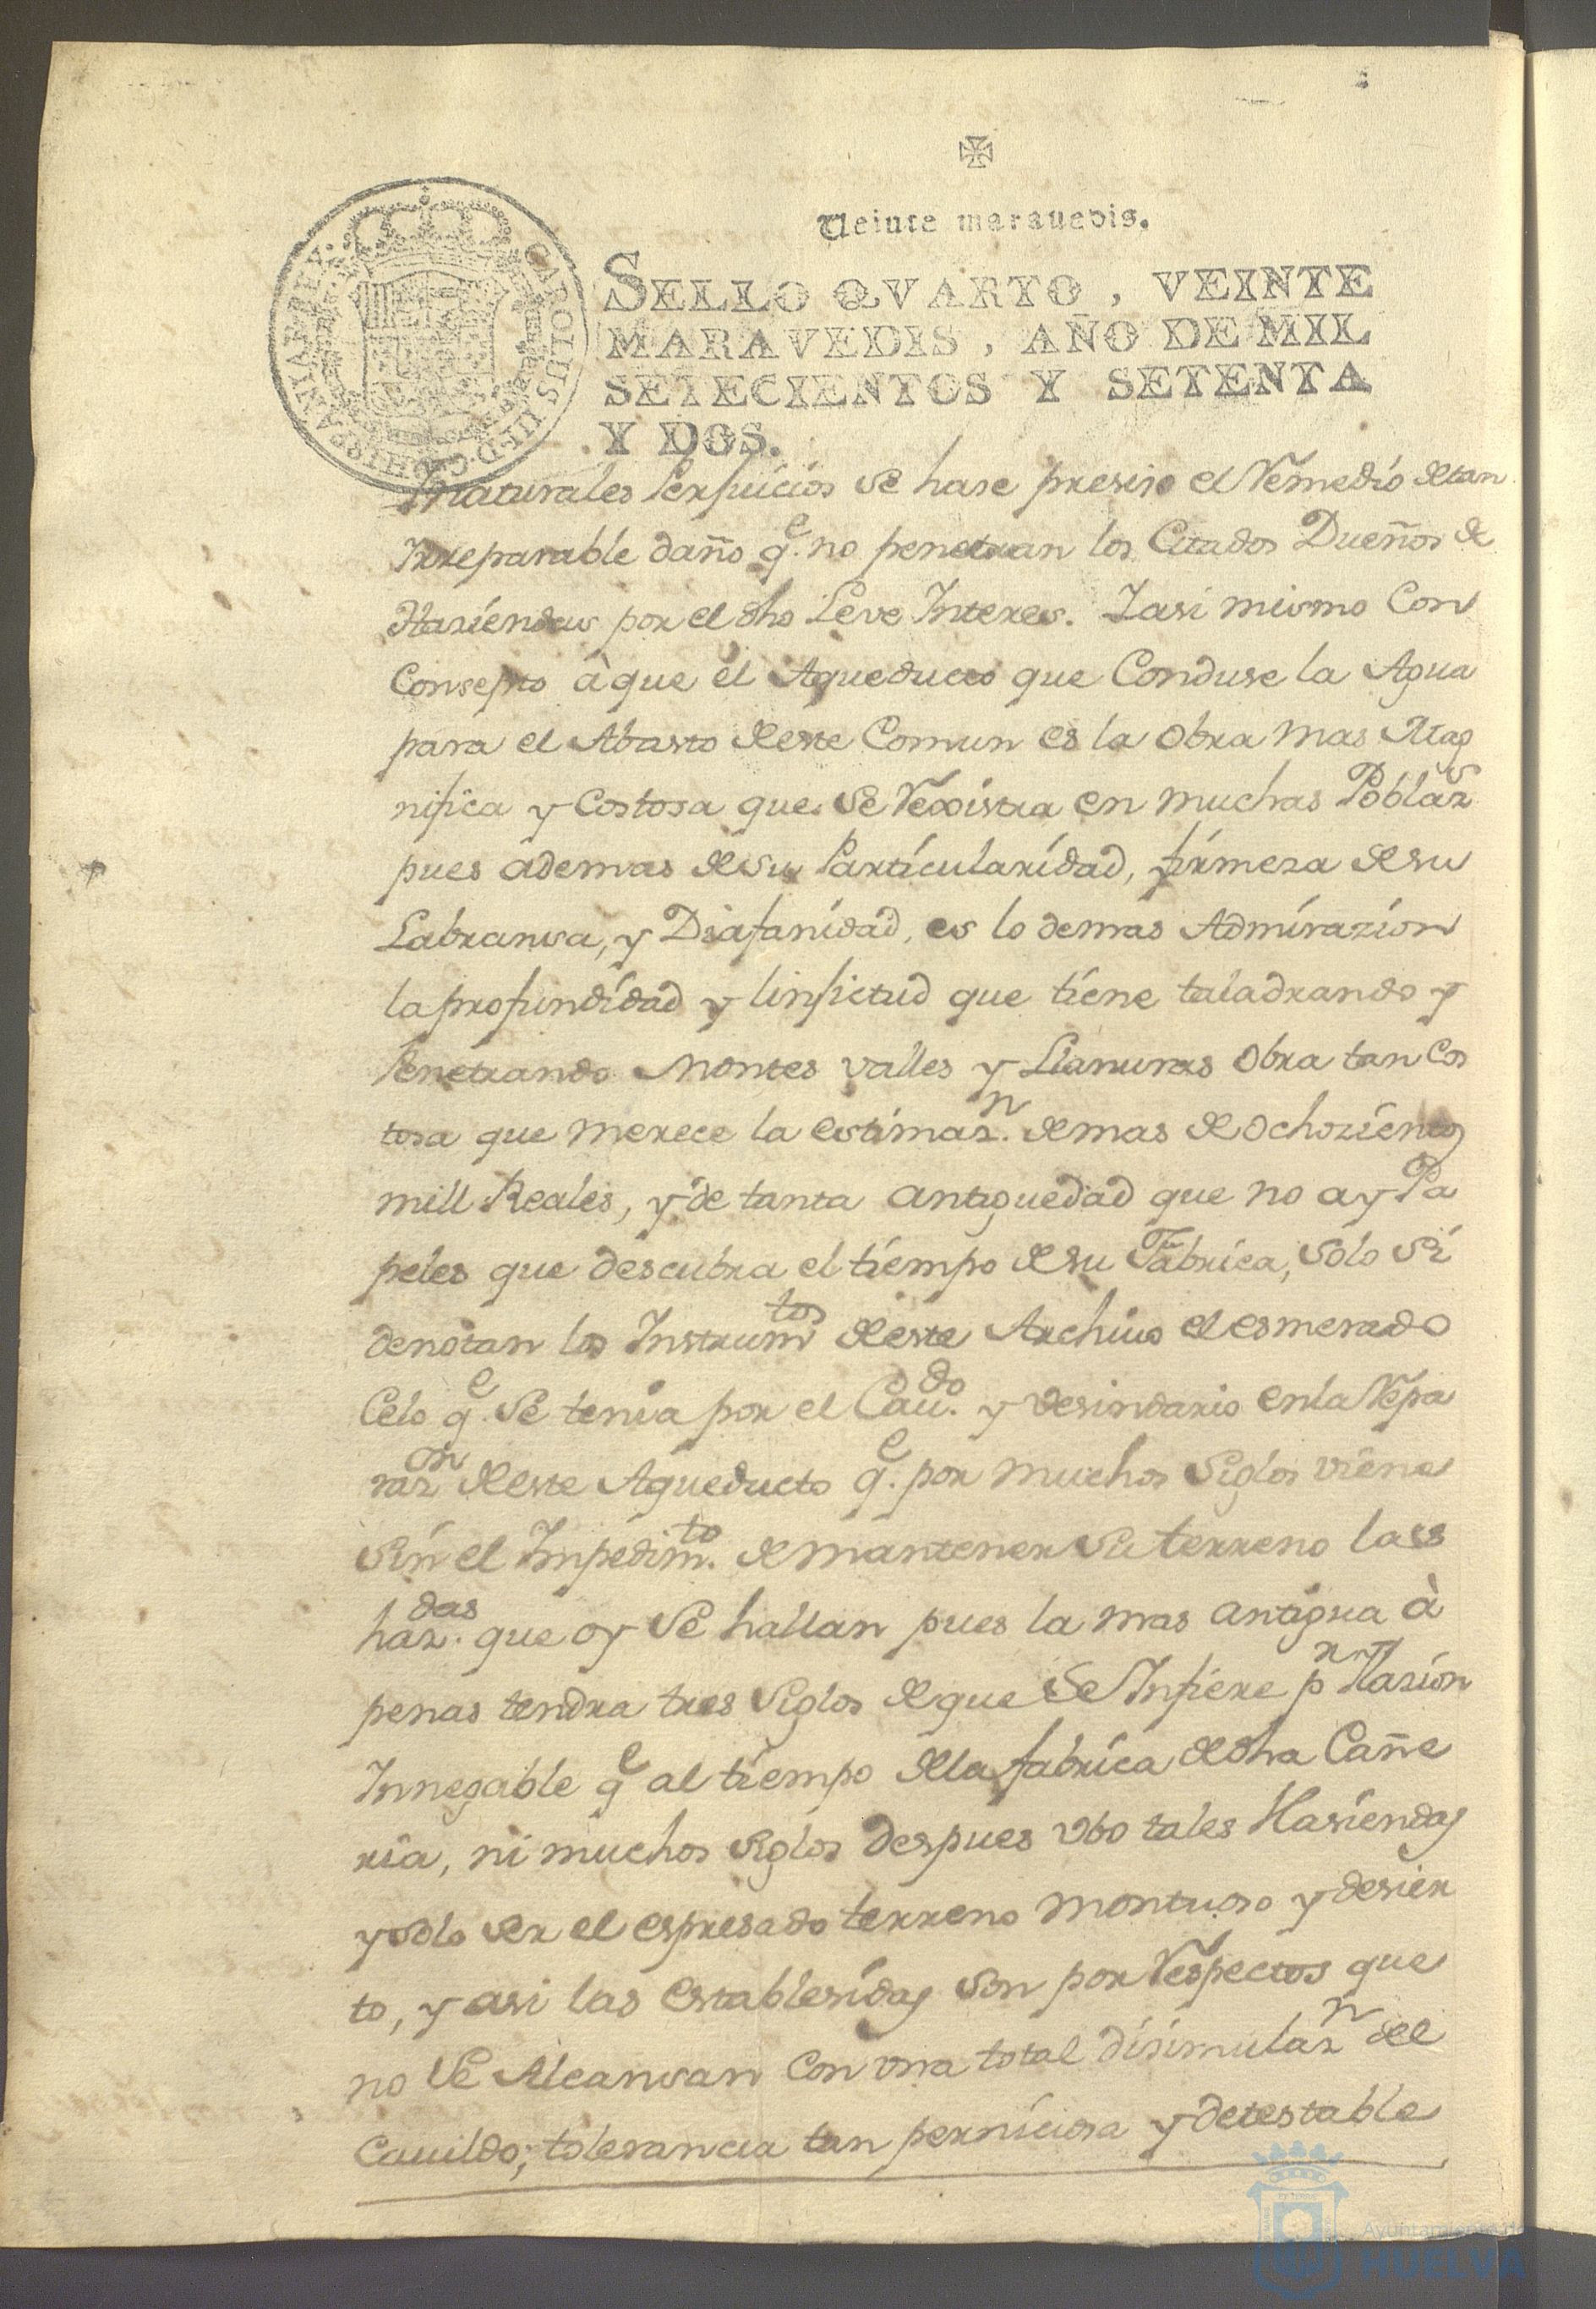 Veinte marauedis.
SELLO QVARTO, VEINTE
MARAVEDIS, AÑO DE MIL
SETECIENTOS Y SETENTA
Y DOS.
CAROLUS III D.G. HISPANIAR. REX.
naturales Perjuicios se hase presiso el Remedio de tan
Irreparable daño q.e no penetran los Citados Dueños de
Haziendas por el dho Leve Interes. Y asi mismo Con
Consepto à que el Aqueducto que Conduse la Agua
para el Abasto de este Comun es la Obra mas Mag
nifica y Costosa que se Rexistra en muchas Poblaz.s
pues ademas de su Particularidad, firmeza de su
Labransa, y Diafanidad, es lo demas Admirazion
la profundidad y linsictud que tiene taladrando y
Penetrando Montes valles y Llanuras Obra tan Cos
tosa que merece la estimaz.n de mas de Ochozientos
mill Reales, y de tanta antiguedad que no ay Pa
peles que descubra el tiempo de su Fabrica, Solo Si
denotan los Instrum.tos de este Archiuo el esmerado
Celo q.e Se tenia por el Cau.do y Vesindario en la Repa
raz.on de este Aqueducto q.e por muchos Siglos viene
Sin el Impedim.to de mantener su terreno las
haz.das que oy Se hallan pues la mas antigua à
penas tendra tres Siglos de que Se Infiere p.r Razion
Innegable q.e al tiempo de la fabrica de dha Cañe
ria, ni muchos Siglos despues Vbo tales Hasiendas
y solo ser el espresado terreno montuoso y desier
to, y asi las establesidas son por Respectos que
no Se Alcansan Con vna total disimulaz.n del
Cauildo; tolerancia tan perniciosa y detestable
Ayuntamiento de
HUELVA